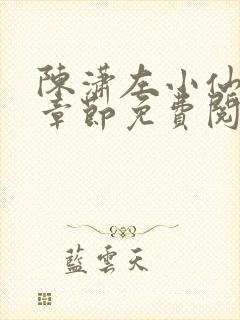 陳瀟左小仙
章節免費閱
藍雲天